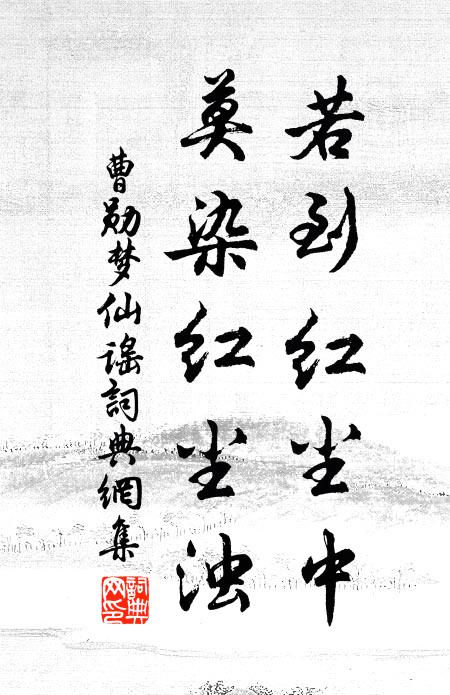 若到红尘中
莫染红尘浊
曹勋梦仙谣詞典網集
詞典网印